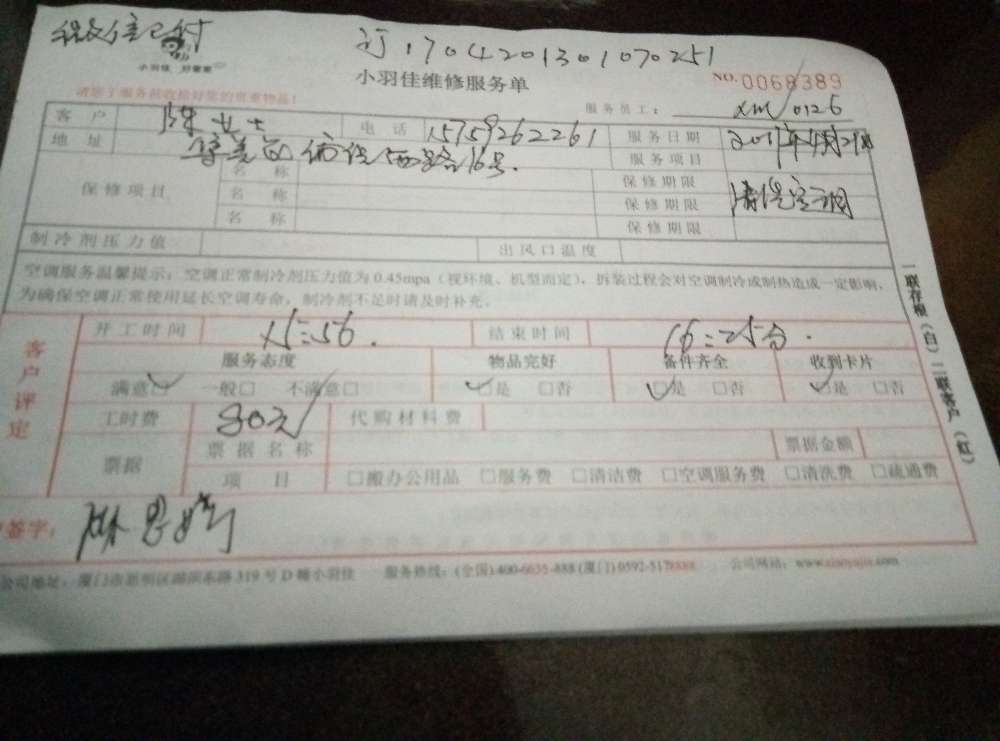 微信已付
订1704201301070251
小羽佳 好管家
小羽佳维修服务单
NO.0068389
请您于服务前收拾好您的贵重物品!
服务员工: xm/0126
客户 陈女士 电话 15759262261 服务日期 2017年4月21日
地址 16号. 服务项目
保修项目 名称 保修期限 清洗空调
名称 保修期限
名称 保修期限
制冷剂压力值 出风口温度
空调服务温馨提示:空调正常制冷剂压力值为0.45mpa(视环境、机型而定),拆装过程会对空调制冷或制热造成一定影响,
为确保空调正常使用延长空调寿命,制冷剂不足时请及时补充。
客户评定
开工时间 15:56. 结束时间 16:25分.
服务态度 物品完好 备件齐全 收到卡片
满意✓ 一般□ 不满意□ ✓是 □否 ✓是 □否 ✓是 □否
工时费 80元 代购材料费
票据 票据名称 票据金额
项目 □搬办公用品 □服务费 □清洁费 □空调服务费 □清洗费 □疏通费
签字:
公司地址:厦门市思明区湖滨东路319号D幢小羽佳 服务热线:(全国)400-6635-888(厦门)0592-5178888 公司网站:www.xiaoyujia.com
一联存根(白)二联客户(红)